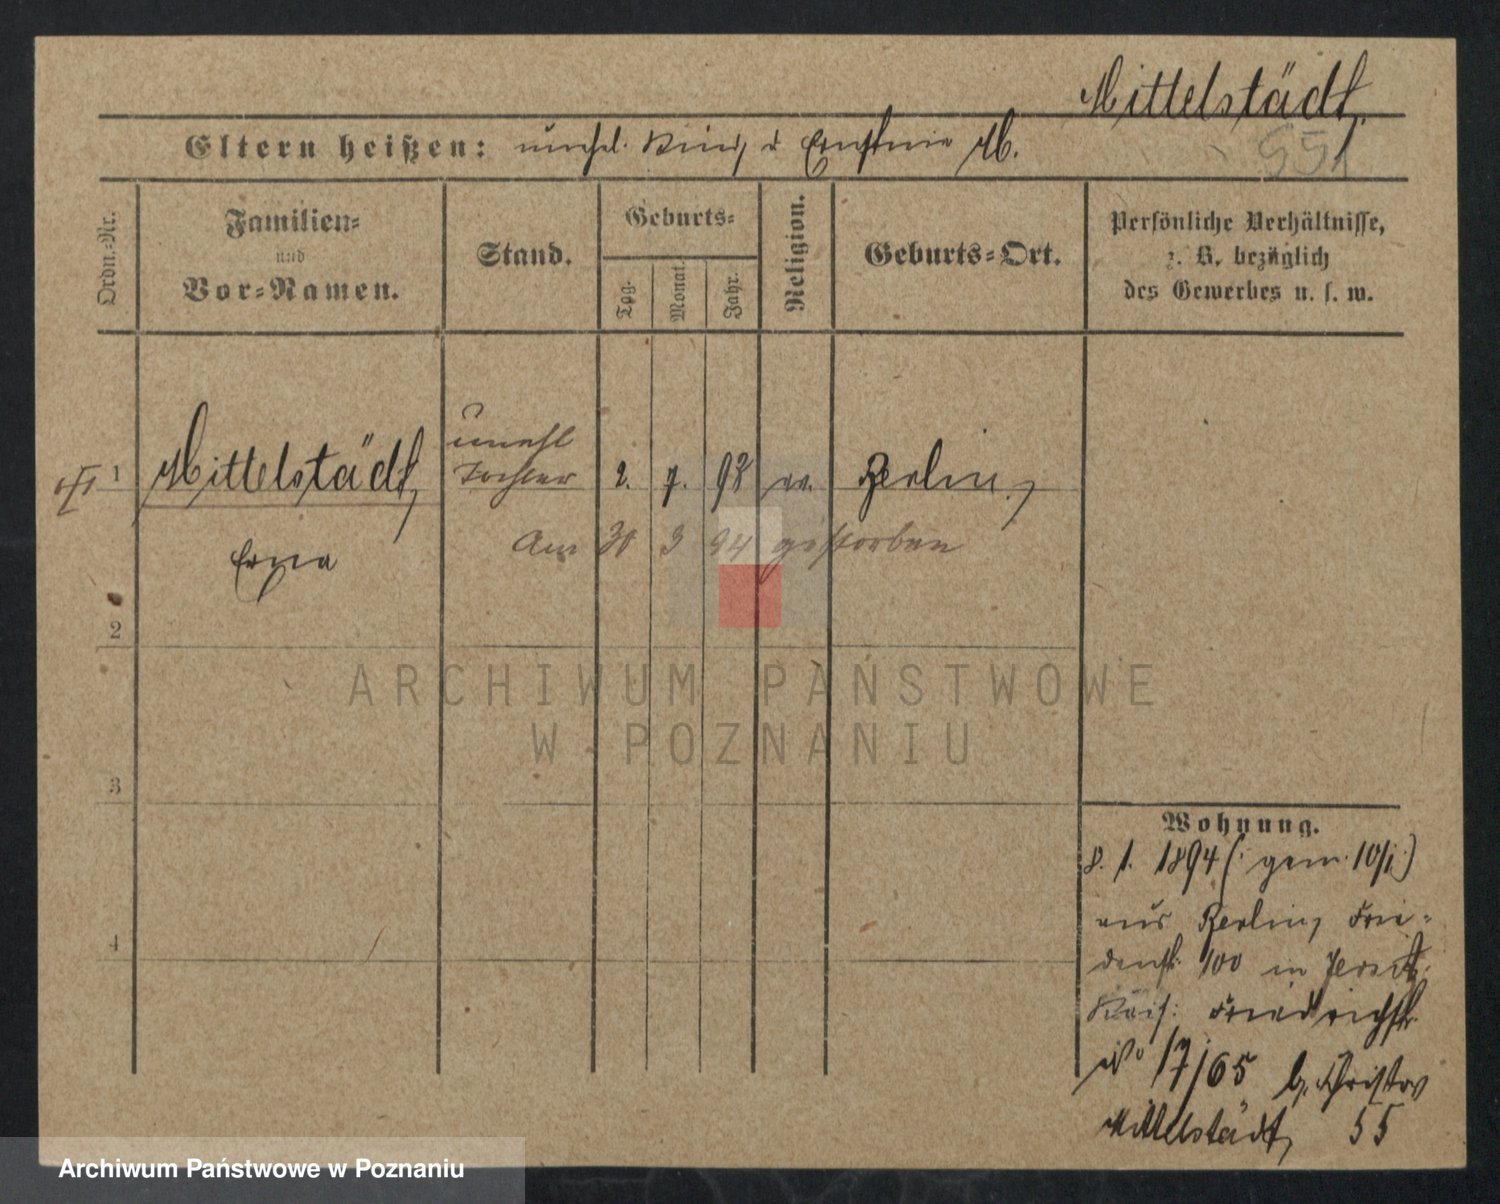 Mittelstädt,
Eltern heißen: unehel. Kind, d Ernstine M.
551
Ordn.-Nr.
Familien-
und
Vor-Namen.
Stand.
Geburts-
Tag.
Monat.
Jahr.
Religion.
Geburts-Ort.
Persönliche Verhältnisse,
z. B. bezüglich
des Gewerbes u. s. w.
1
Mittelstädt,
Erna
unehl
Tochter
2. 7. 93 ev. Berlin,
Am 30 3 94 gestorben
2
3
4
Wohnung.
8. 1. 1894 (: gem. 10/1:)
aus Berlin, Frie-
denstr. 100 in Jersitz.
Kais: Friedrichstr.
No 17/65 b.
Mittelstädt, 55
ARCHIWUM PAŃSTWOWE
W POZNANIU
Archiwum Państwowe w Poznaniu